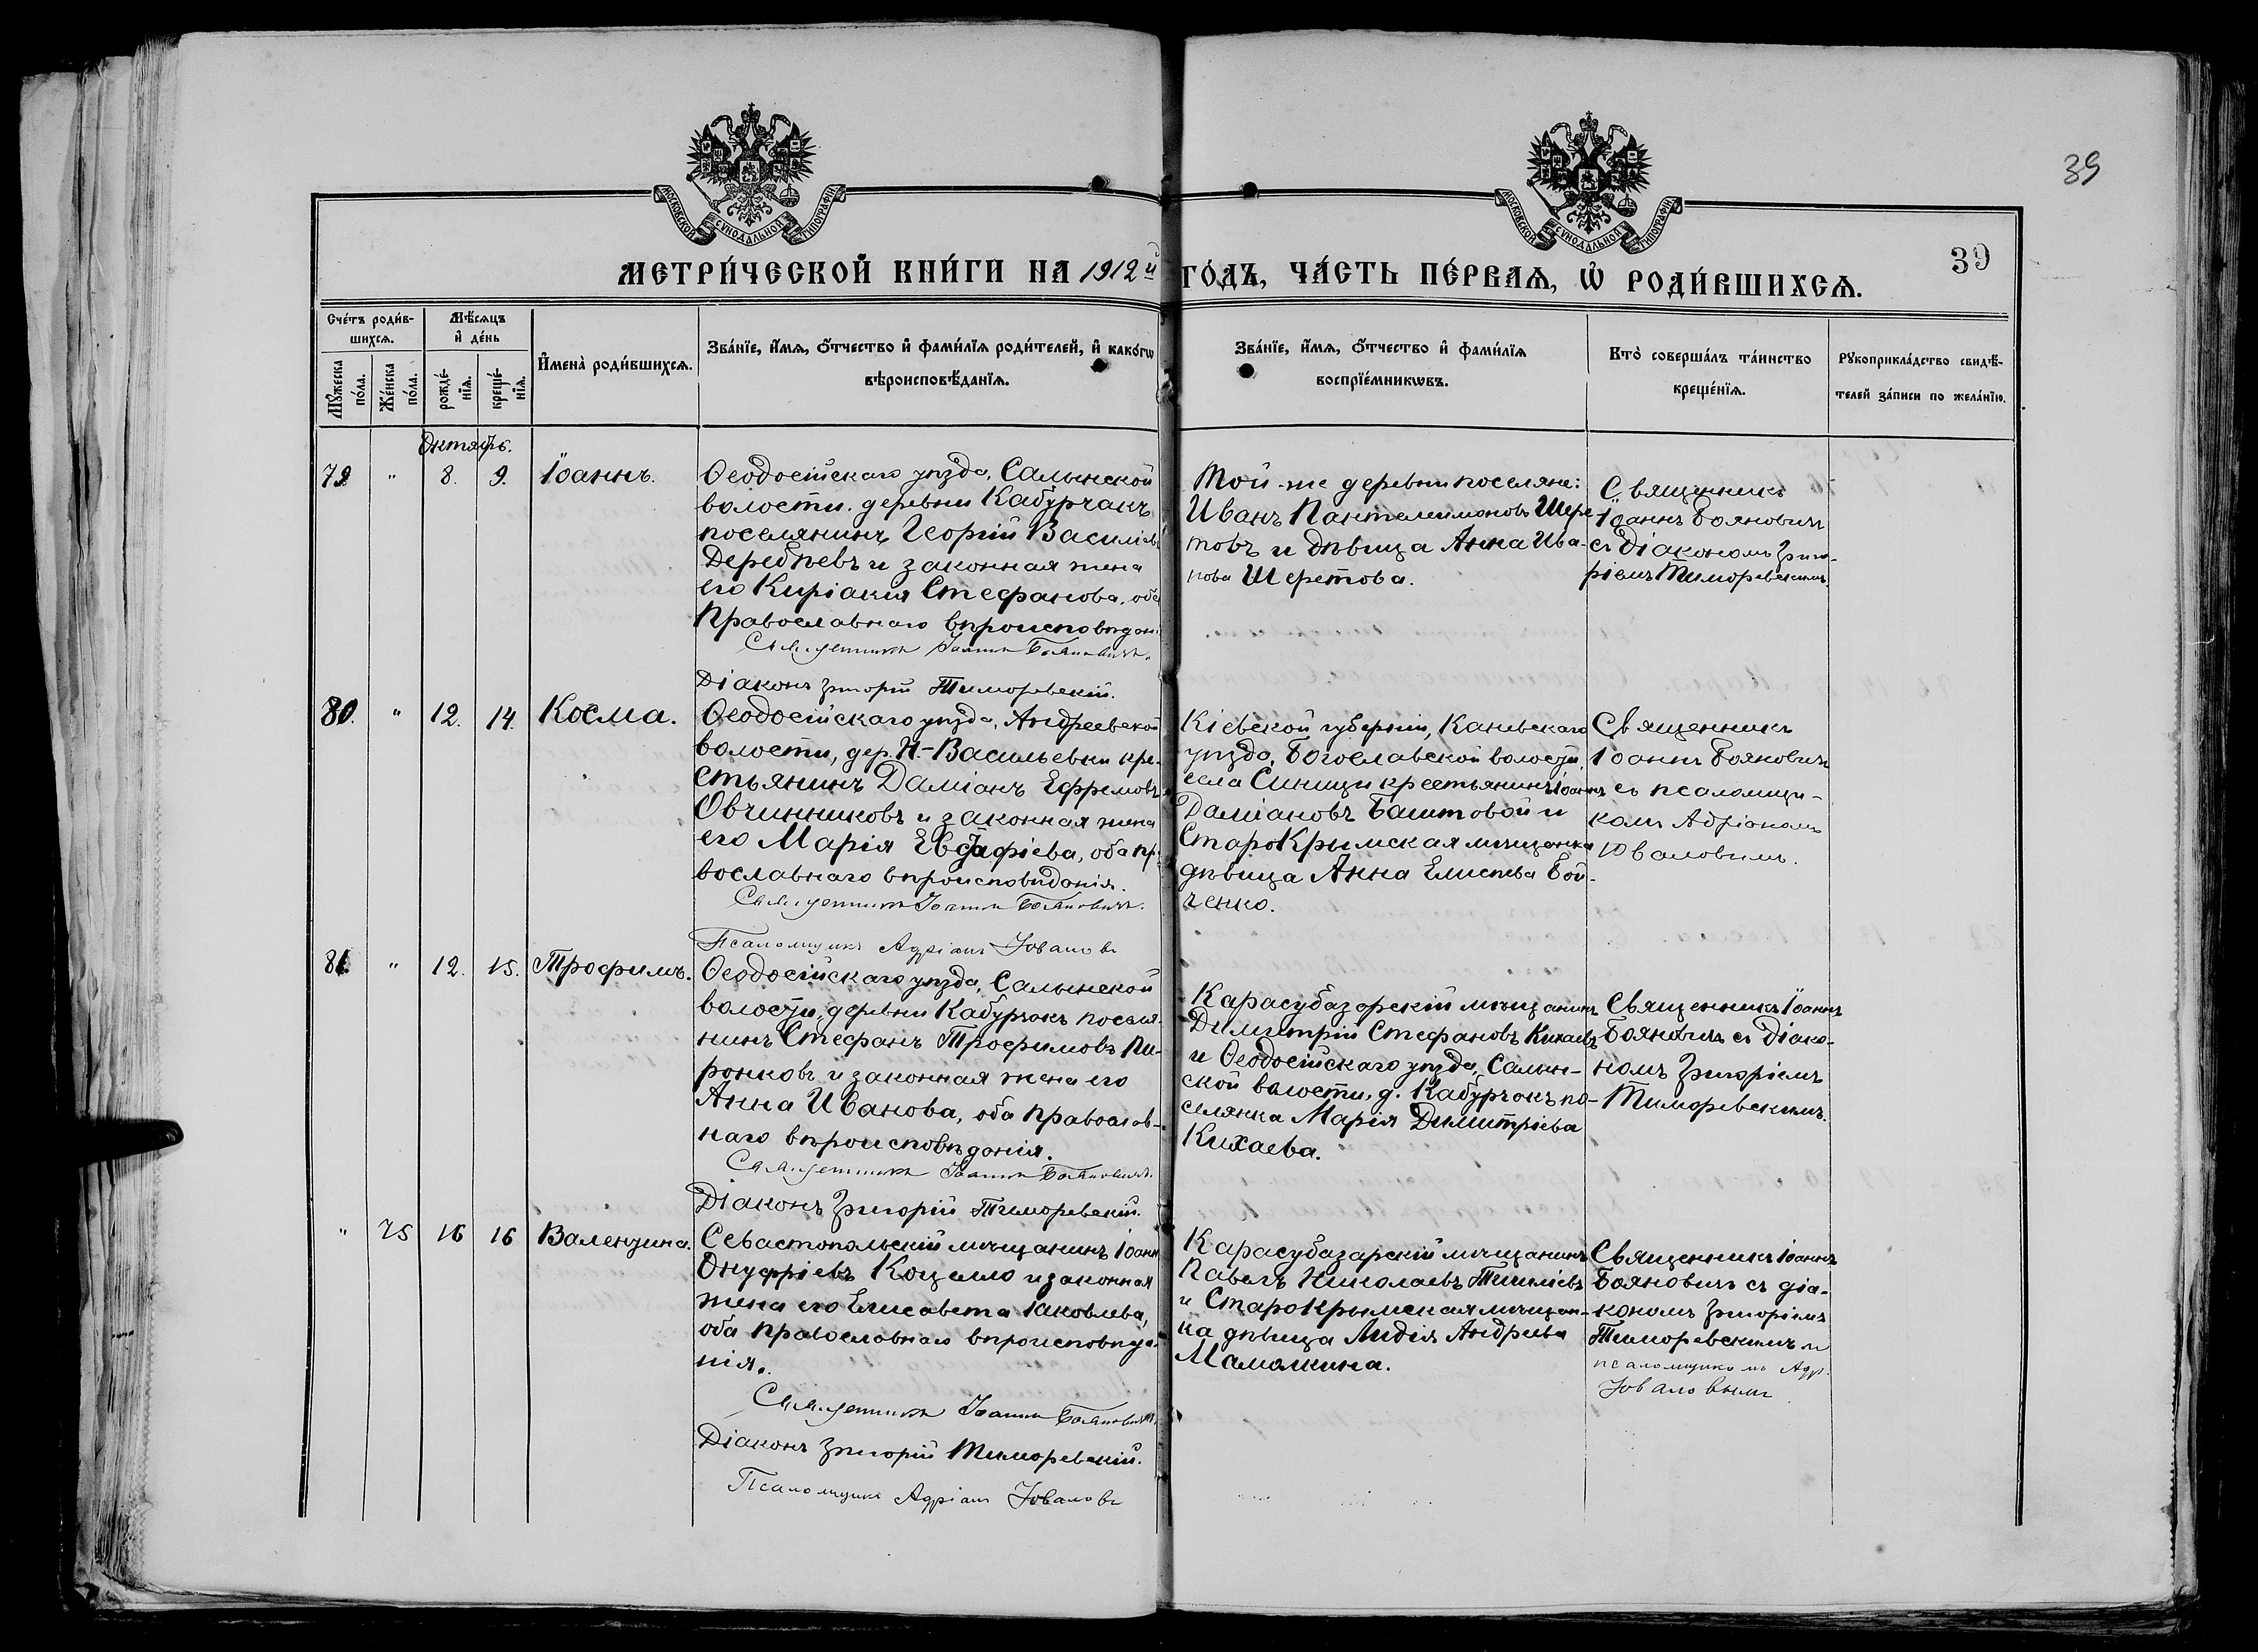 39
МОСКОВСКОЙ СУНОДАЛЬНОЙ ТИПОГРАФІИ
МОСКОВСКОЙ СУНОДАЛЬНОЙ ТИПОГРАФІИ
39
МЕТРИ́ЧЕСКОЙ КНИ́ГИ НА 1912й ГО́ДЪ, ЧА́СТЬ ПЕ́РВАѦ, Ѡ РОДИ́ВШИХСѦ.
Сче́тъ роди́в-
шихсѧ.
Мꙋ́жеска по́ла.
Же́нска по́ла.
Мѣ́сѧцъ
и де́нь
рожде́-
нїѧ.
креще́-
нїѧ.
Имена̀ роди́вшихсѧ.
Зва́нїе, и́мѧ, о́тчество и фами́лїѧ роди́телей, и како́гѡ
вѣроисповѣ́данїѧ.
Зва́нїе, и́мѧ, о́тчество и фами́лїѧ
воспрїе́мникѡвъ.
Кто̀ соверша́лъ та́инство
креще́нїѧ.
Рꙋкоприкла́дство свидѣ́-
телей за́писи по жела́нїю.
Октябрь.
79. " 8. 9. Іоаннъ.
Ѳеодосійскаго уѣзда, Салынской
волости, деревни Кабурчакъ
поселянинъ Георгій Василіевъ
Дередѣевъ и законная жена
его Киріакія Стефанова, оба
Православнаго вѣроисповѣдан.
Священникъ Іоаннъ Бояновичъ.
Діаконъ Григорій Тиморевскій.
Той-же деревни поселяне:
Иванъ Пантелеимоновъ Шере-
товъ и дѣвица Анна Ива-
нова Шеретова.
Священникъ
Іоаннъ Бояновичъ
съ Діакономъ Григо-
ріемъ Тиморевскимъ.
80. " 12. 14. Косма.
Ѳеодосійскаго уѣзда, Андреевской
волости, дер. Н.-Васильевки кре-
стьянинъ Даміанъ Ефремовъ
Овчинниковъ и законная жена
его Марія Евстафіева, оба пра-
вославнаго вѣроисповѣданія.
Священникъ Іоаннъ Бояновичъ.
Псаломщикъ Адріанъ Юваловъ
Кіевской губерніи, Каневскаго
уѣзда, Богославской волости,
села Синици крестьянинъ Іоаннъ
Даміановъ Баштовой и
СтароКрымская мѣщанка
дѣвица Анна Елисѣева Бой-
ченко.
Священникъ
Іоаннъ Бояновичъ
съ псаломщи-
комъ Адріаномъ
Юваловымъ.
81. " 12. 15. Трофимъ.
Ѳеодосійскаго уѣзда, Салынской
волости, деревни Кабурчакъ поселя-
нинъ Стефанъ Трофимовъ Пи-
ронковъ и законная жена его
Анна Иванова, оба православ-
наго вѣроисповѣданія.
Священникъ Іоаннъ Бояновичъ.
Діаконъ Григорій Тиморевскій.
Карасубазарскій мѣщанинъ
Димитрій Стефановъ Кихаевъ
и Ѳеодосійскаго уѣзда, Салын-
ской волости, д. Кабурчакъ по-
селянка Марія Димитріева
Кихаева.
Священникъ Іоаннъ
Бояновичъ съ Діако-
номъ Григоріемъ
Тиморевскимъ.
" 75 16 16 Валентина.
Севастопольскій мѣщанинъ Іоаннъ
Онуфріевъ Коцелло и законная
жена его Елисавета Іаковлева,
оба православнаго вѣроисповѣда-
нія.
Священникъ Іоаннъ Бояновичъ.
Діаконъ Григорій Тиморевскій.
Псаломщикъ Адріанъ Юваловъ
Карасубазарскій мѣщанинъ
Павелъ Николаевъ
и СтароКрымская мѣщан-
ка дѣвица Лидія Андреева
Мамалкина.
Священникъ Іоаннъ
Бояновичъ съ діа-
кономъ Григоріемъ
Тиморевскимъ и
псаломщикомъ Адр.
Юваловымъ